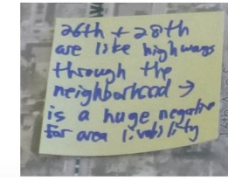 26th + 28th
are like highways
through the
neighborhood →
is a huge negative
for area livability